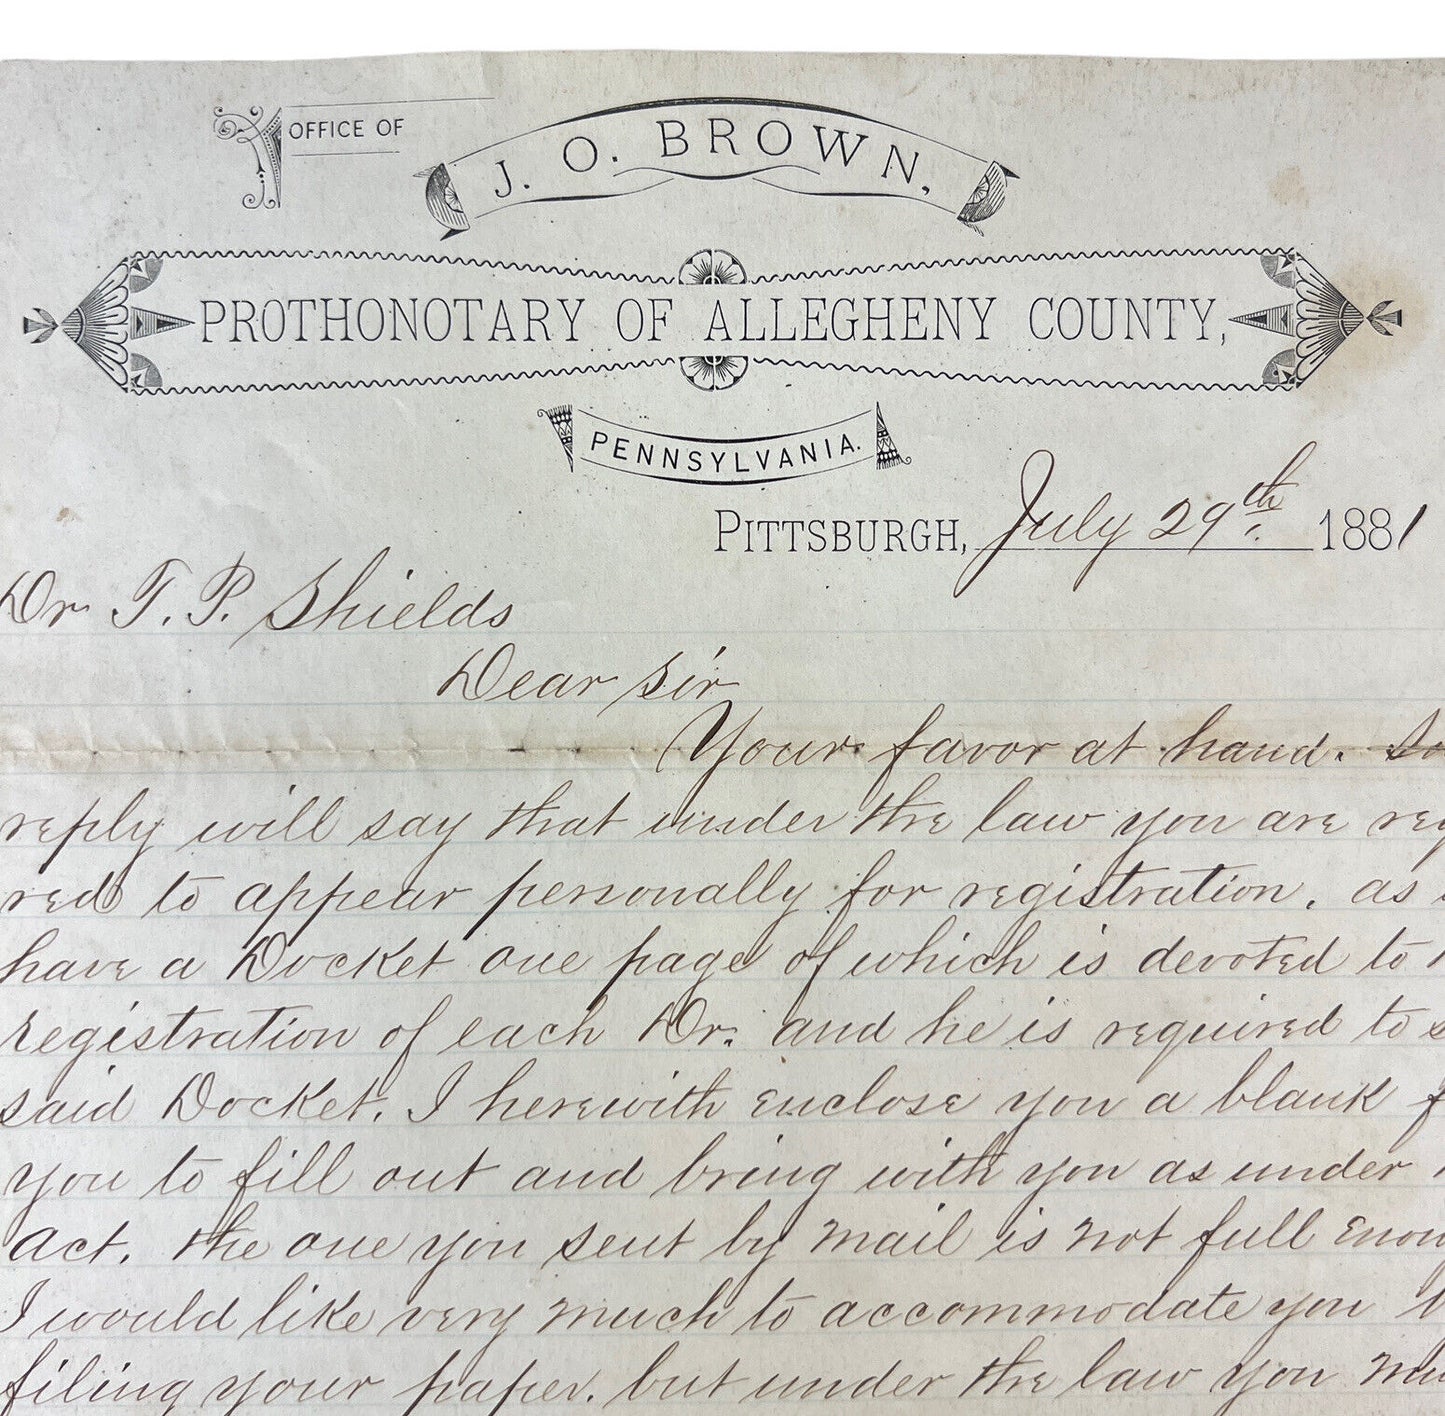 OFFICE OF
J. O. BROWN,
PROTHONOTARY OF ALLEGHENY COUNTY,
PENNSYLVANIA.
PITTSBURGH, July 29th. 1881
Dr T. P. Shields
Dear Sir
Your favor at hand.
reply will say that under the law you are
red to appear personally for registration. as
have a Docket one page of which is devoted to
registration of each Dr. and he is required to
said Docket. I herewith enclose you a blank
you to fill out and bring with you as under
Act. the one you sent by mail is not full
I would like very much to accommodate you
filing your paper. but under the law you